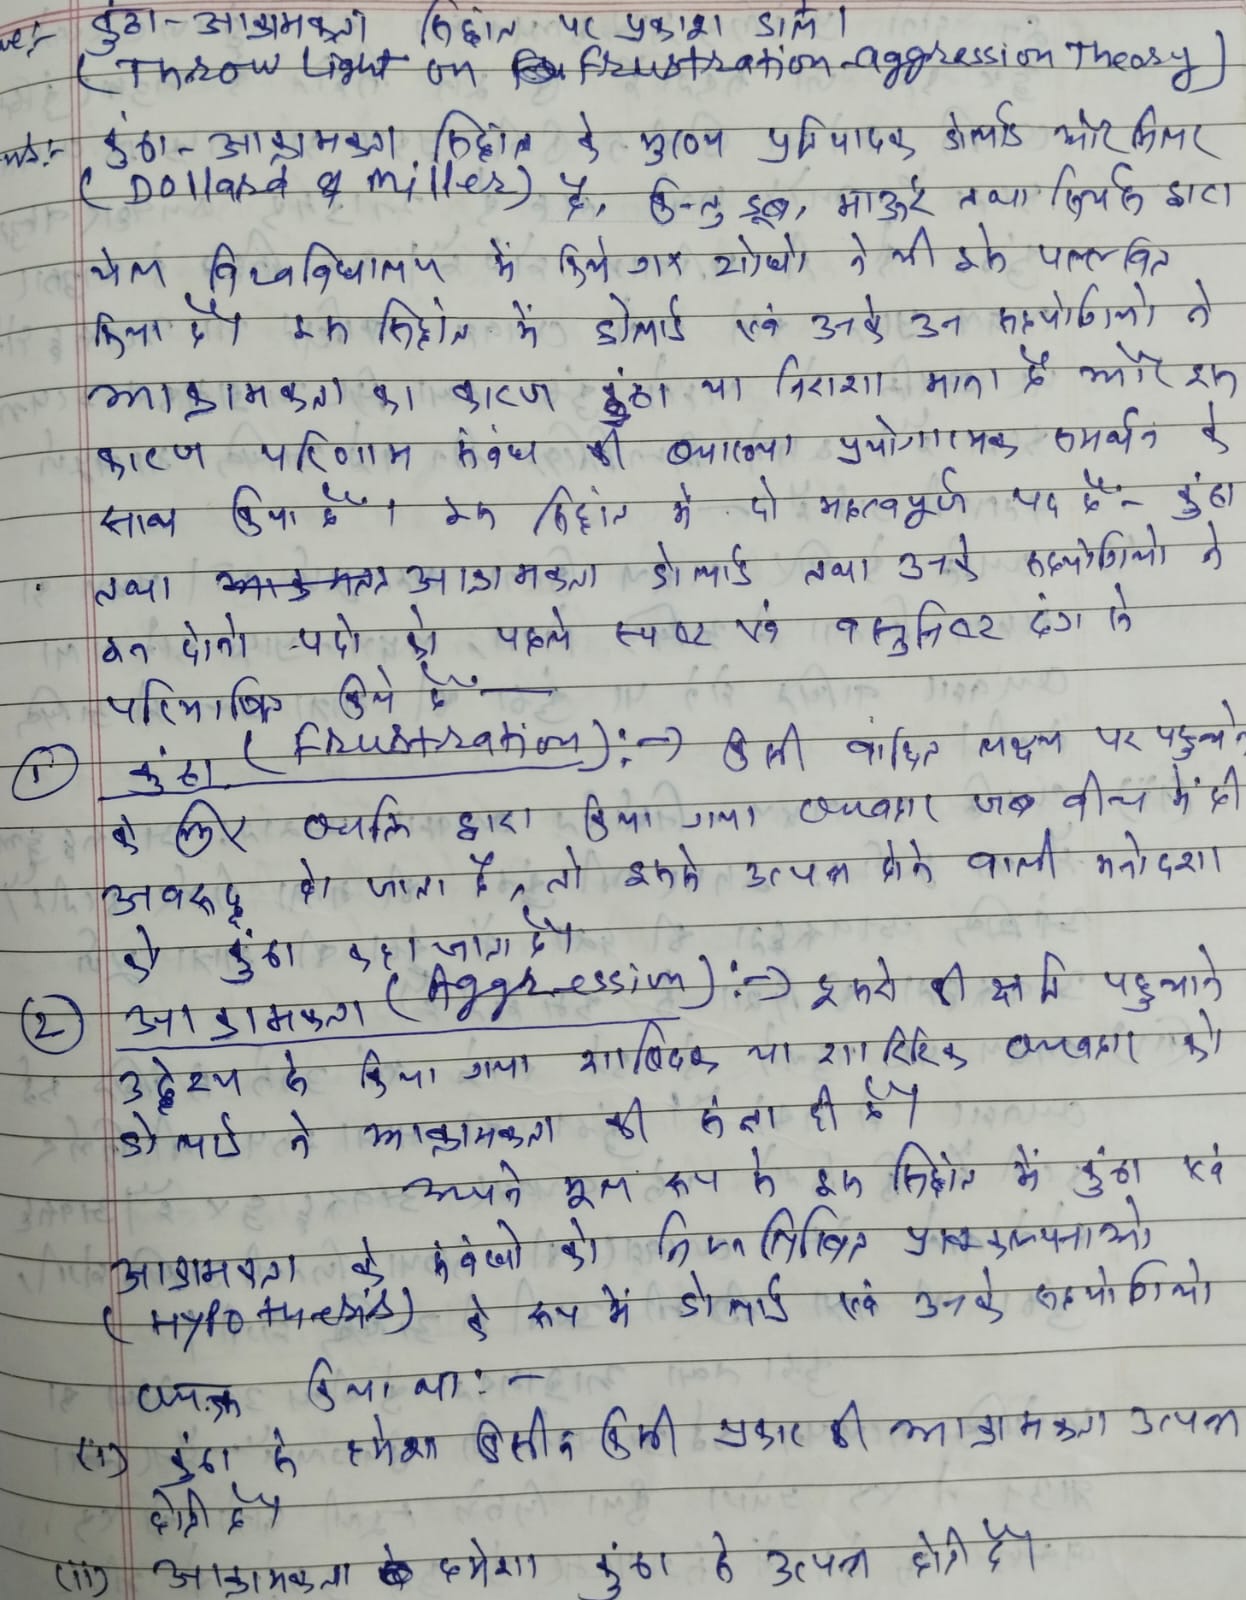 कुंठा-आक्रामकता सिद्धांत पर प्रकाश डालें।
(Throw Light on Frustration-aggression Theory)
कुंठा-आक्रामकता सिद्धांत के मुख्य प्रतिपादक डोलार्ड और मिलर
(Dollard & Miller) है, किन्तु डूब, माऊरर तथा सियर्स द्वारा
येल विश्वविद्यालय में किये गए शोधो ने भी इसे पल्लवित
किया है। इस सिद्धांत में डोलार्ड एवं उनके उन सहयोगियो ने
आक्रामकता का कारण कुंठा या निराशा माना है और इस
कारण परिणाम संबंध की व्याख्या प्रयोगात्मक समर्थन के
साथ किया है। इस सिद्धांत मे दो महत्वपूर्ण पद है:- कुंठा
तथा आक्रामकता डोलार्ड तथा उनके सहयोगियो ने
इन दोनो पदो को पहले स्पष्ट एवं वस्तुनिष्ट ढंग से
परिभाषित किये है —
(1) कुंठा (Frustration) :→ किसी वांछित लक्ष्य पर पहुचने
के लिए व्यक्ति द्वारा किया गया व्यवहार जब बीच में ही
अवरूद्ध हो जाता है, तो इससे उत्पन्न होने वाली मनोदशा
को कुंठा कहा जाता है।
(2) आक्रामकता (Aggression) :→ दूसरो की क्षति पहुचाने
उद्देश्य से किया गया शाब्दिक या शारिरिक व्यवहार को
डोलार्ड ने आक्रामकता की संज्ञा दी है।
अपने मूल रूप से इस सिद्धांत में कुंठा एवं
आक्रामकता के संबंधो को निम्नलिखित प्राक्कल्पनाओ
(Hypothesis) के रूप में डोलार्ड एवं उनके सहयोगियो
व्यक्त किया था :-
(i) कुंठा से हमेशा किसी न किसी प्रकार की आक्रामकता उत्पन्न
होती है।
(ii) आक्रामकता हमेशा कुंठा से उत्पन्न होती है।